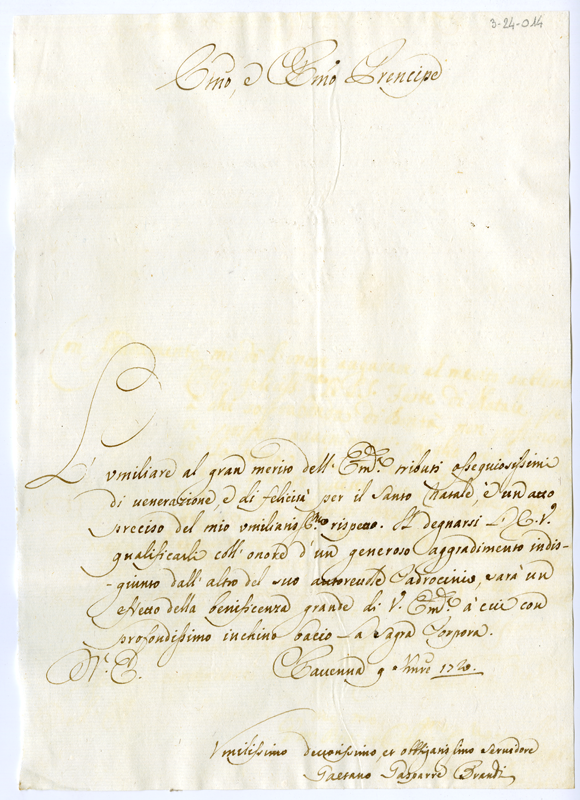 3-24-014
Emo, e Rmo Prencipe
L'umiliare al gran merito dell' Em.za V.ra tributi ossequiosissimi
di venerazione, e di felicità per il Santo Natale, è un atto
preciso del mio umilianis.mo rispetto. Il degnarsi L' E. V.
qualificarli coll' onore d'un generoso aggradimento indis-
-giunto dall' altro del suo autorevole Padrocinio, sarà un
effetto della beneficenza grande di V. Em.za à cui con
profondissimo inchino bacio la Sagra Porpora.
Di V. E. Ravenna 9 Xmbre 1720.
Umilissimo devotissimo, et obblig servidore
Gaetano Gasparre Brandi